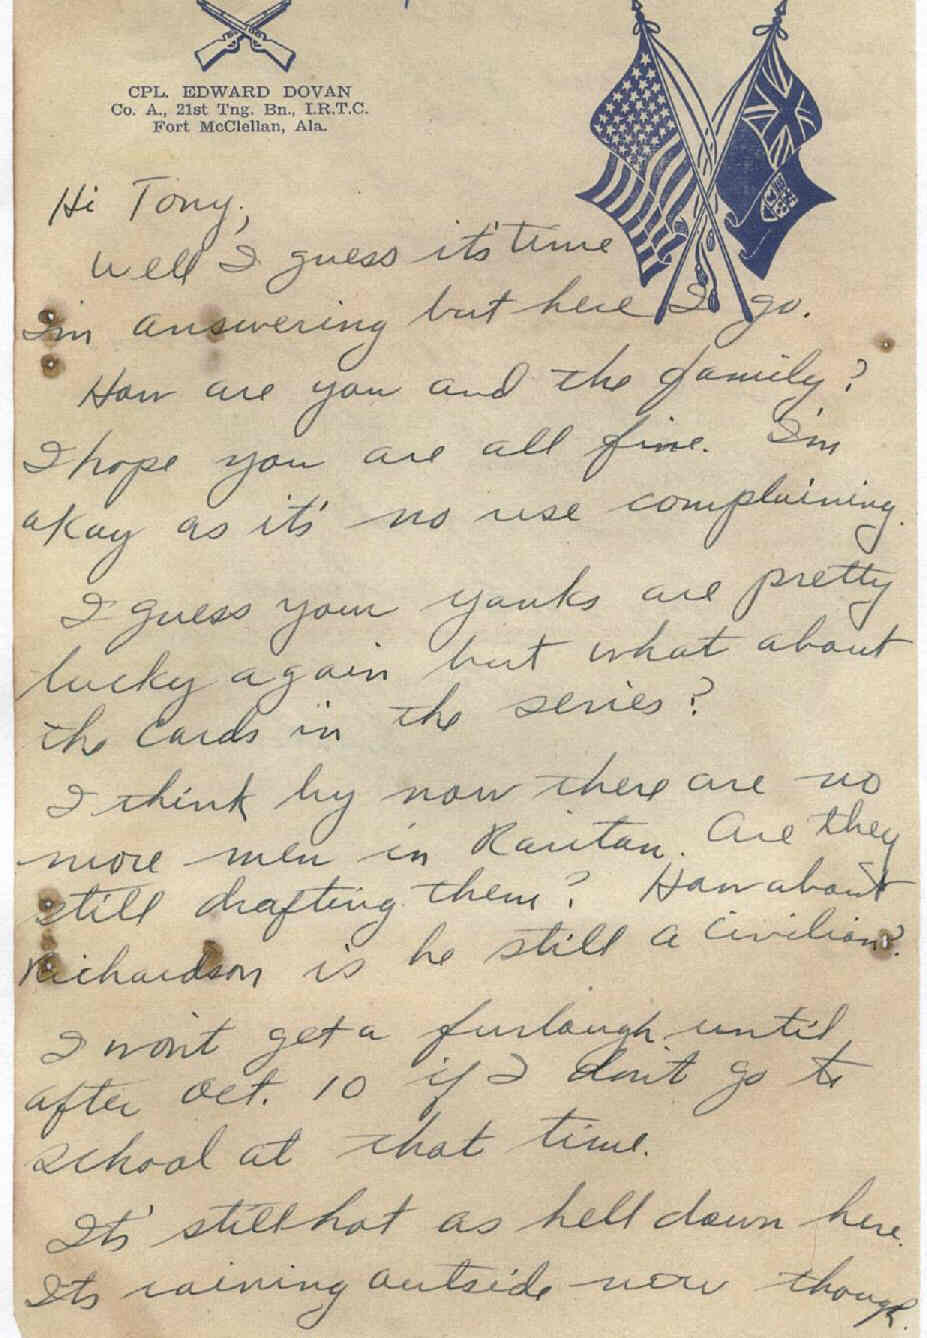 CPL. EDWARD DOVAN
Co. A., 21st Tng. Bn., I.R.T.C.
Fort McClellan, Ala.
Hi Tony,
Well I guess it's time
I'm answering but here I go.
How are you and the family?
I hope you are all fine. I'm
okay as it's no use complaining.
I guess your yanks are pretty
lucky again but what about
the Cards in the series?
I think by now there are no
more men in Raritan. Are they
still drafting them? How about
Richardson is he still a civilian?
I won't get a furlough until
after Oct. 10 if I don't go to
school at that time.
It's still hot as hell down here.
Its raining outside now though.